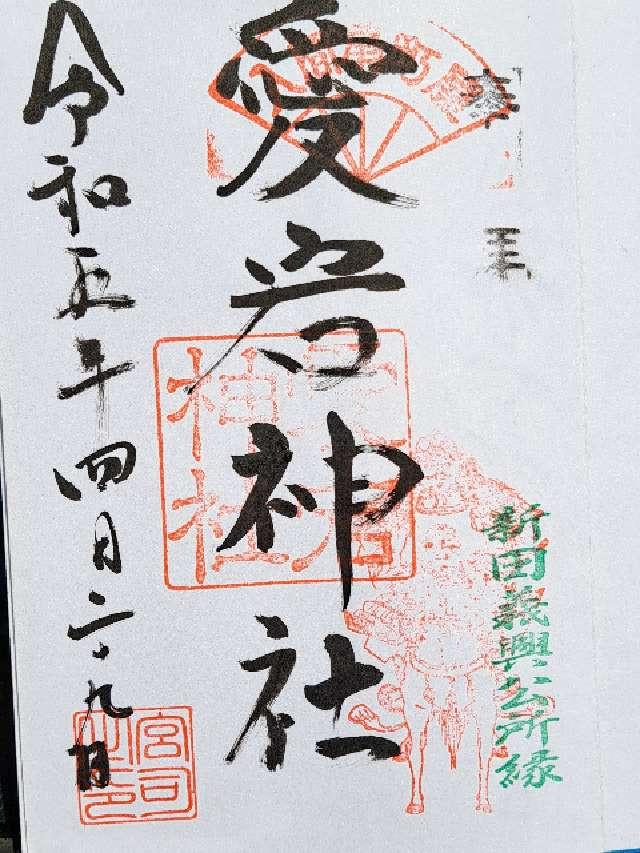 奉拝
新田義興公所縁
愛宕神社
令和五年四月二十九日
宮司之印